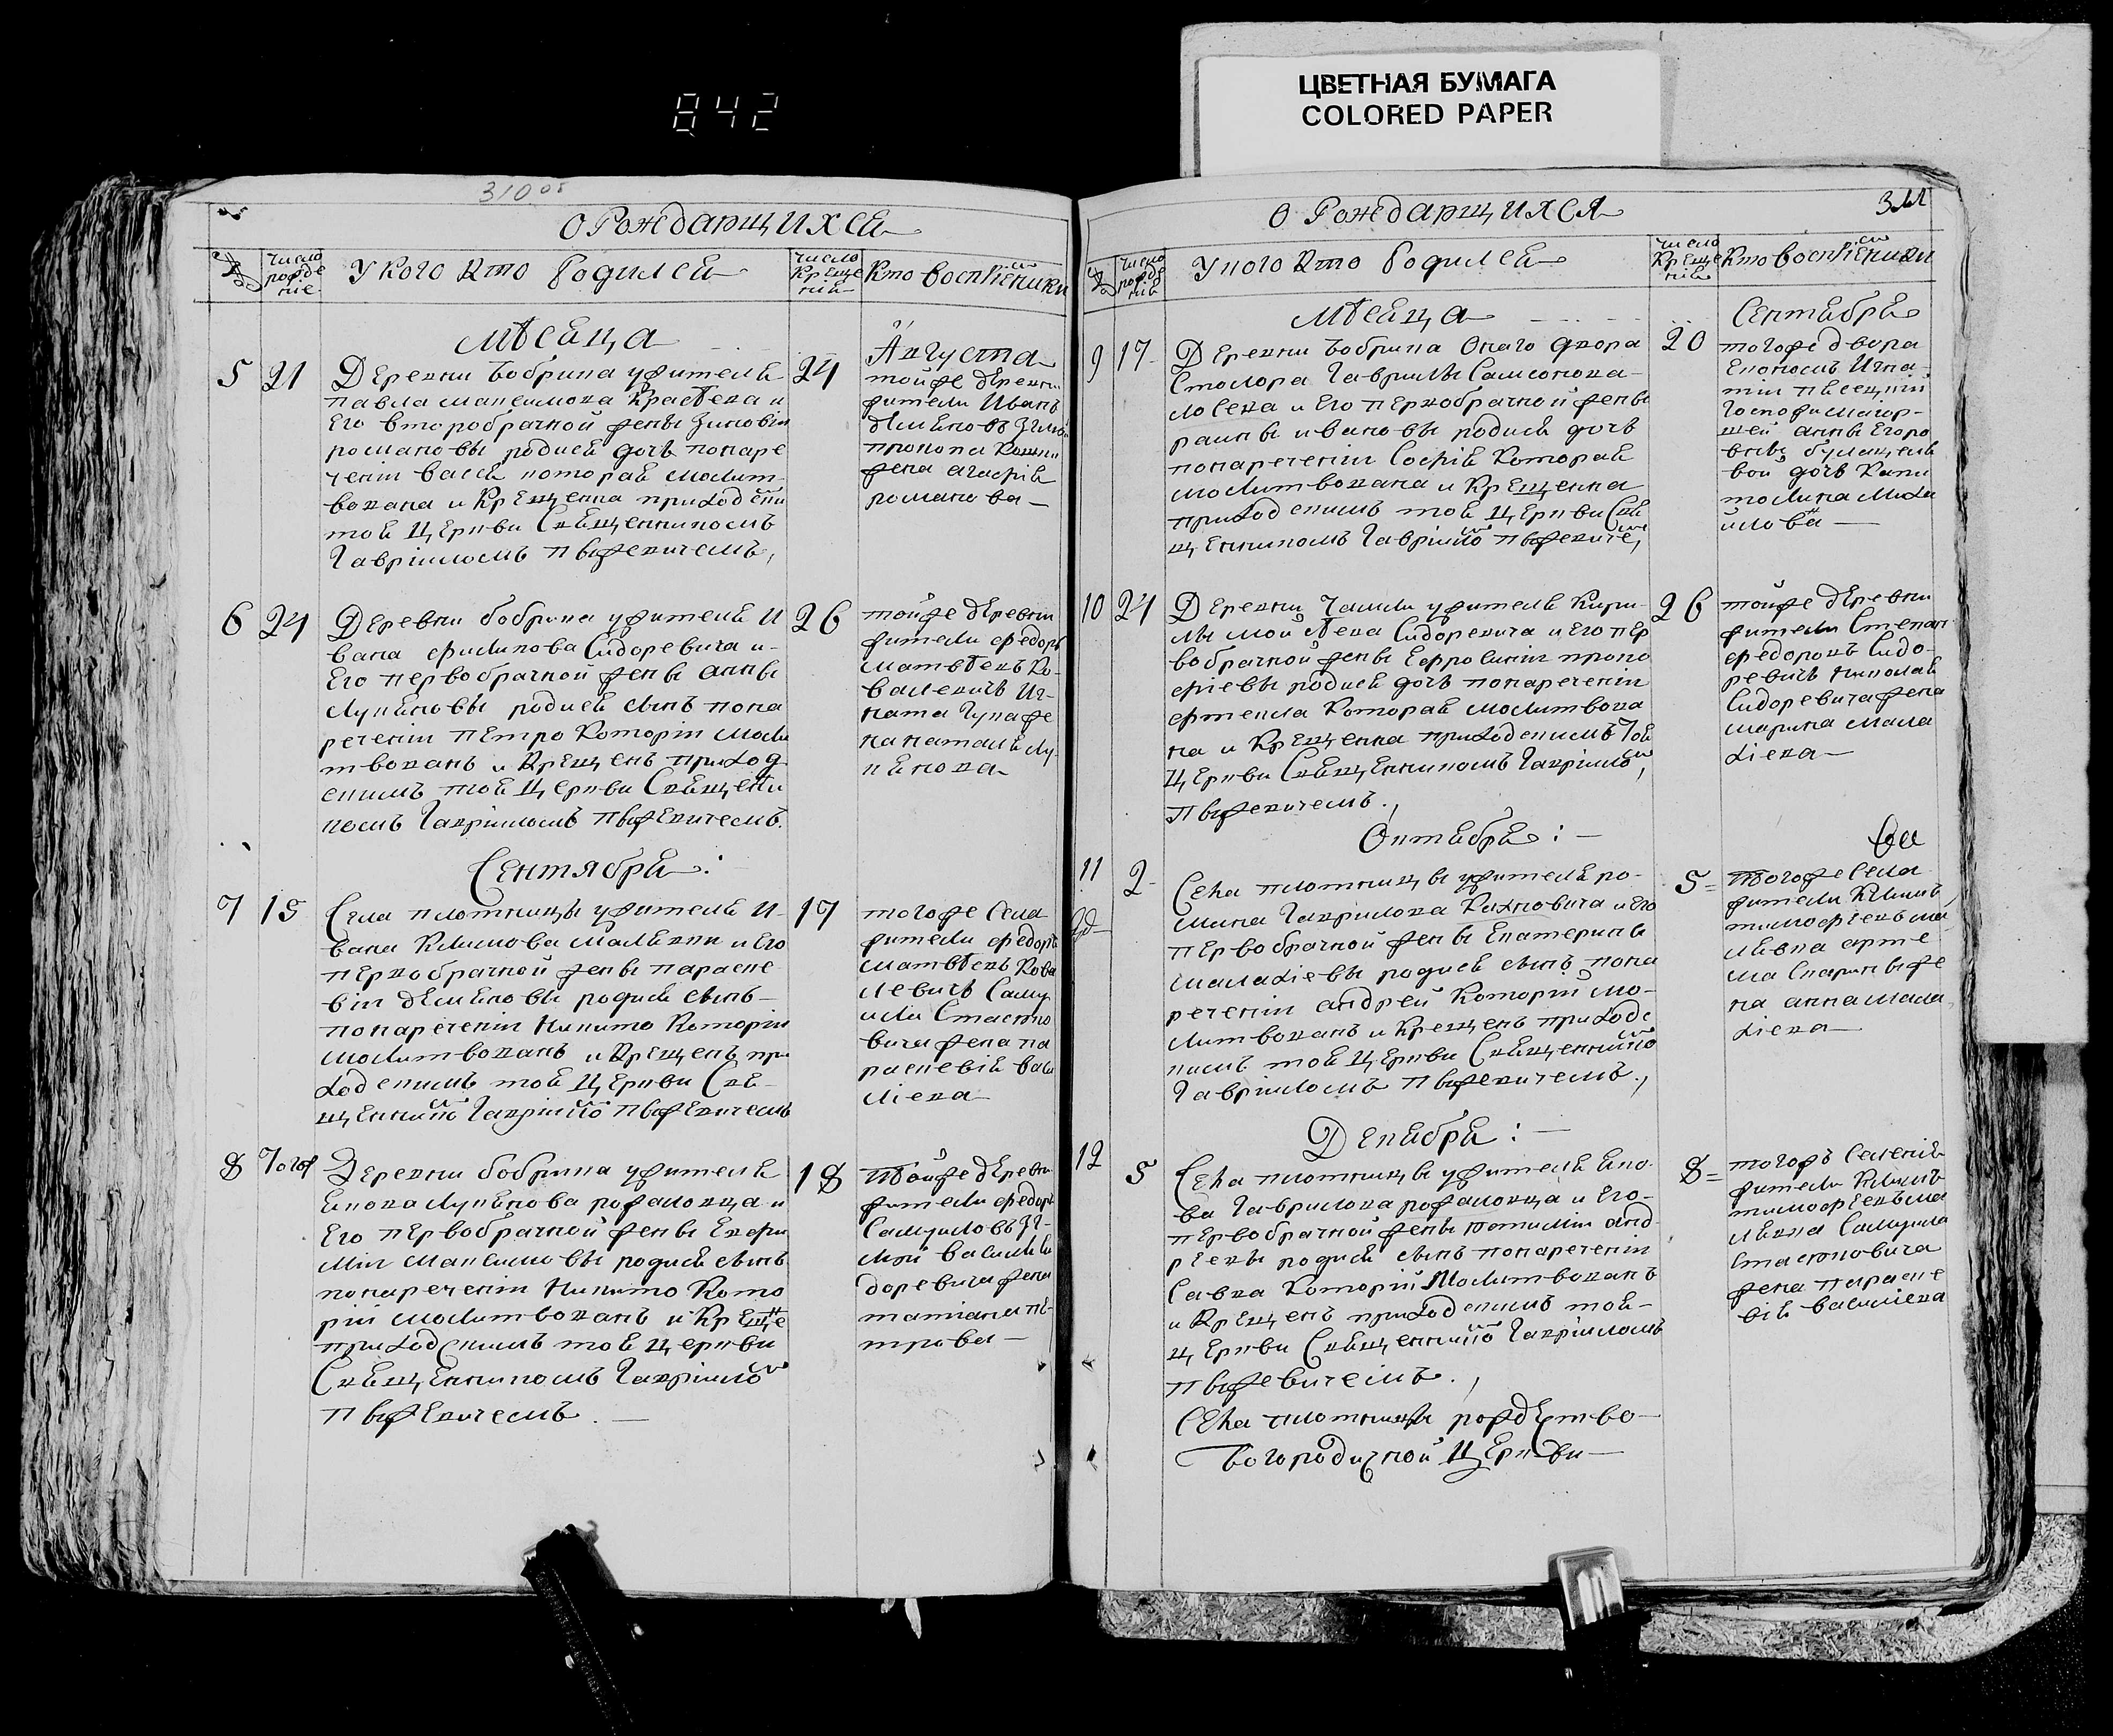 842
ЦВЕТНАЯ БУМАГА
COLORED PAPER
310 об
О Рождающихся
№
число рожде ние
У кого кто родился
число креще нія
Кто воспріємники
Мѣсяца
Августа
5
21
Деревни Бобрика жителя
Павла Максимова Красѣева и
Его второбрачной жены Зиновіи
романовы родися дочь понаре
ченіи васся которая молит-
вована и Крещенна приходскім
тоя Церкви Священникомъ
Гавріиломъ Пыжевичемъ,
24
тойже деревни
жители Иванъ
прокопа
жена агафія
романова
6
24
Деревни бобрика жителя И
вана филипова Сидоревича и
Его первобрачной жены анны
Лукяновы родися сынъ пона
реченіи Петро Которіи моли
твованъ и Крещенъ приход
скимъ тоя Церкви Священи
комъ Гавріиломъ Пыжевичемъ.
26
тойже деревни
жители федоръ
Матвѣевъ Ко-
валевичъ Иг-
ната же
на наталія Лу-
кянова
Сентября:
7
15
Села плотницы жителя И-
вана Климова Малевки и Его
первобрачной жены параске
віи демяновы родися сынъ
понареченіи Никито Которіи
молитвованъ и Крещенъ при
ходскимъ тоя Церкви Свя-
щенником Гавріилом Пыжевичемъ
17
тогоже Села
жители федоръ
Матвѣевъ Кова
левичъ Саму
ила Стасюко
вича жена па
раскевія васи
ліева
8
Тогож
Деревни бобрика жителя
Якова Лукянова рожаловца и
Его первобрачной жены Евфи
міи Максимовы родися сынъ
понареченіи Никито Кото
ріи молитвованъ и Креще
приходскимъ тоя церкви
Священникомъ Гавріилом
Пыжевичемъ.
18
тойже деревни
жители федоръ
Самуиловъ
Василія Си
доревича жена
татіана пе-
трова
311
О Рождающихся
№
число рожде нія
У кого кто родился
число креще нія
Кто воспріємники
Мѣсяца
Сентября
9
17
Деревни бобрика Онаго двора
Столюра Гаврилы Самсонова
лосева и Его первобрачной жены
раины ивановы родися дочь
понареченіи Софія Которая
молитвована и Крещенна
приходскимъ тоя Церкви Свя
щенникомъ Гавріилом Пыжевиче,
20
тогоже двора
Економъ Игна
тіи
Госпожи маіор-
шей анны Егоро
вны
вой дочь Капи
толина Миха
илова
10
24
Деревни жителя Кири-
лы Мойсѣева Сидоревича и Его пер
вобрачной жены Ефросиніи проко
фіевы родися дочь понареченіи
фтекла Которая молитвова
на и Крещенна приходскимъ тоя
Церкви Священникомъ Гавріилом,
Пыжевичемъ.,
26
тойже деревни
жители Степанъ
федоровъ Сидо-
ревичъ Николая
Сидоревича жена
марина мала
хіева
Октября:
11
2
Села плотницы жителя ро-
мана Гаврилова Рахновича и Его
первобрачной жены Екатерины
малахіевы родися сынъ пона
реченіи андрей Которіи мо-
литвованъ и Крещенъ приходс
кимъ тоя Церкви Священником
Гавріиломъ Пыжевичемъ.,
5
тогоже Села
жители Климъ
тимофіевъ ма
левка арте
ма же
на анна мала
хіева
Декабря:
12
5
Села плотницы жителя Яко-
ва Гаврилова рожаловца и Его-
первобрачной жены анд
рѣевы родися сынъ понареченіи
Савва Которіи Молитвованъ
и Крещенъ приходскимъ тоя-
Церкви Священником Гавріиломъ
Пыжевичемъ.,
8
тогожъ Селенія
жители Климъ
тимофіевъ ма
левка Самуила
Стасюковича
жена параске
вія василіева
Села плотницы рождество-
Богородичной Церкви